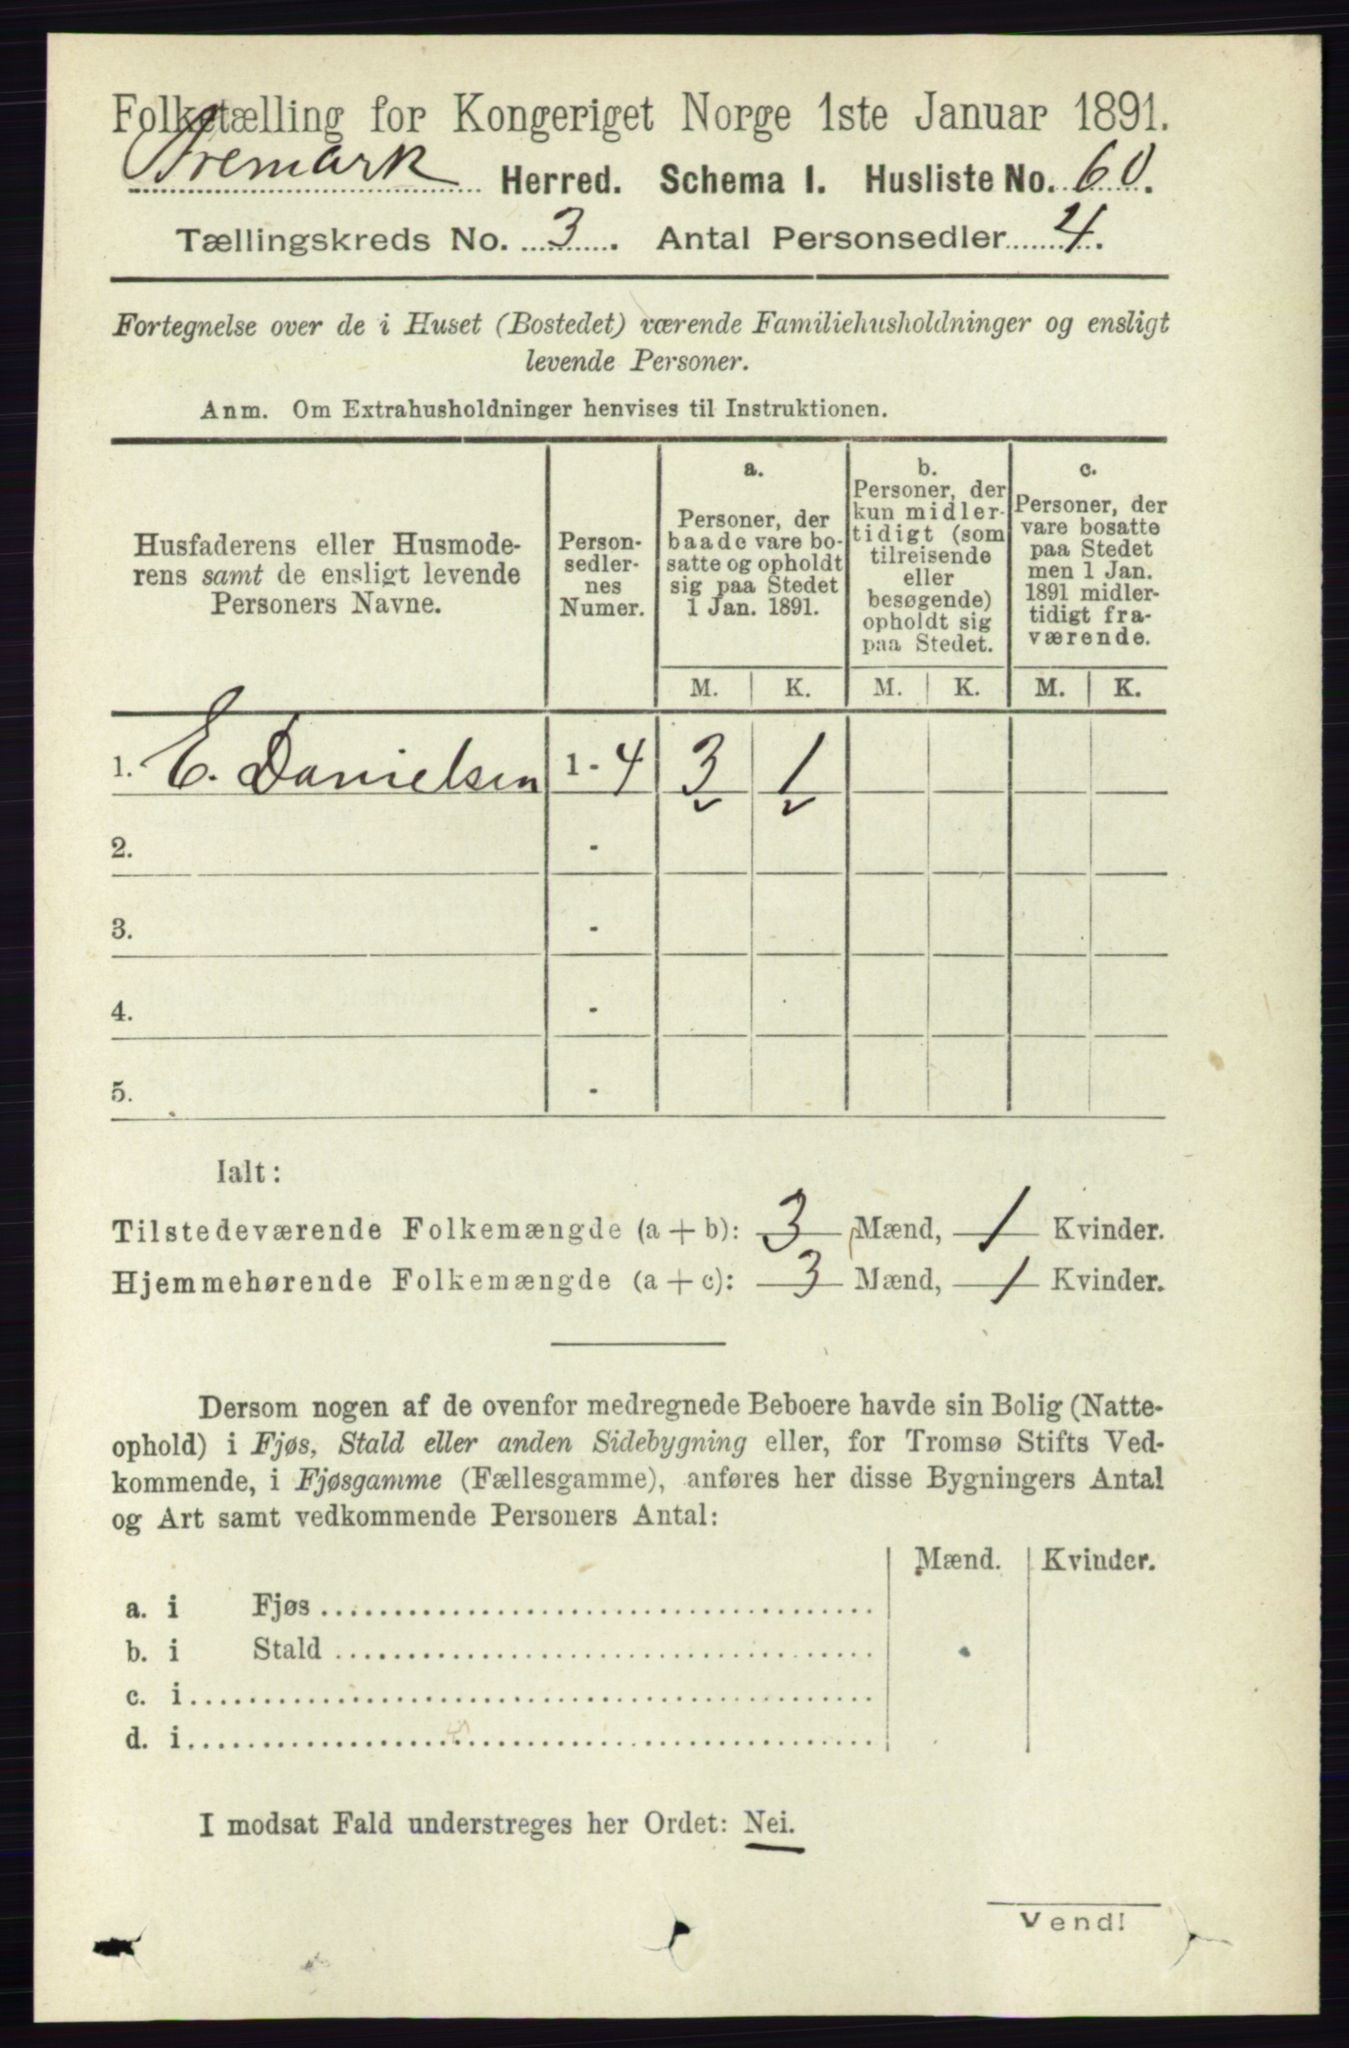 Folketælling for Kongeriget Norge 1ste Januar 1891.
Øremark Herred. Schema I. Husliste No. 60.
Tællingskreds No. 3. Antal Personsedler 4.
Fortegnelse over de i Huset (Bostedet) værende Familiehusholdninger og ensligt
levende Personer.
Anm. Om Extrahusholdninger henvises til Instruktionen.
Husfaderens eller Husmode-
rens samt de ensligt levende
Personers Navne.
Person-
sedler-
nes
Numer.
a.
Personer, der
baade vare bo-
satte og opholdt
sig paa Stedet
1 Jan. 1891.
b.
Personer, der
kun midler-
tidigt (som
tilreisende
eller
besøgende)
opholdt sig
paa Stedet.
c.
Personer, der
vare bosatte
paa Stedet
men 1 Jan.
1891 midler-
tidigt fra-
værende.
M. K. M. K. M. K.
1. E. Danielsen 1 - 4 3 1
2. -
3. -
4. -
5. -
Ialt:
Tilstedeværende Folkemængde (a + b): 3 Mænd, 1 Kvinder.
Hjemmehørende Folkemængde (a + c): 3 Mænd, 1 Kvinder.
Dersom nogen af de ovenfor medregnede Beboere havde sin Bolig (Natte-
ophold) i Fjøs, Stald eller anden Sidebygning eller, for Tromsø Stifts Ved-
kommende, i Fjøsgamme (Fællesgamme), anføres her disse Bygningers Antal
og Art samt vedkommende Personers Antal:
Mænd. Kvinder.
a. i Fjøs
b. i Stald
c. i
d. i
I modsat Fald understreges her Ordet: Nei.
Vend!